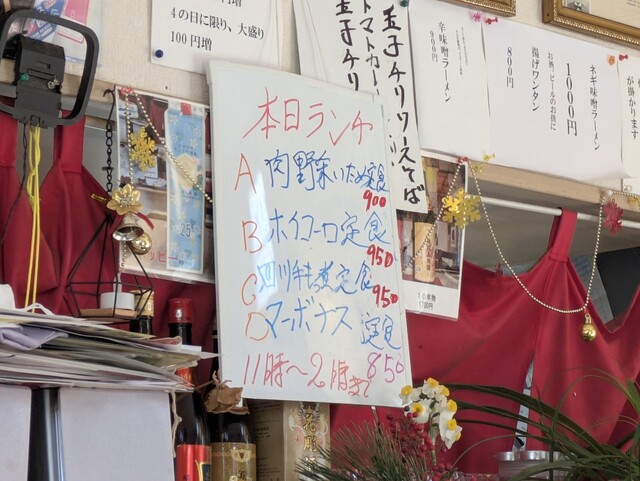 4の日に限り、大盛り
100円増
玉子チリソースそば
トマトカ
玉子チリ
辛味噌ラーメン
900円
お酒、ビールのお供に
揚げワンタン
800円
ネギ味噌ラーメン
1000円
が掛かります
本日ランチ
A 肉野菜いため定食
900
B ホイコーロ定食
950
C 四川
定食
950
D マーボナス 定食
850
11時〜2時まで